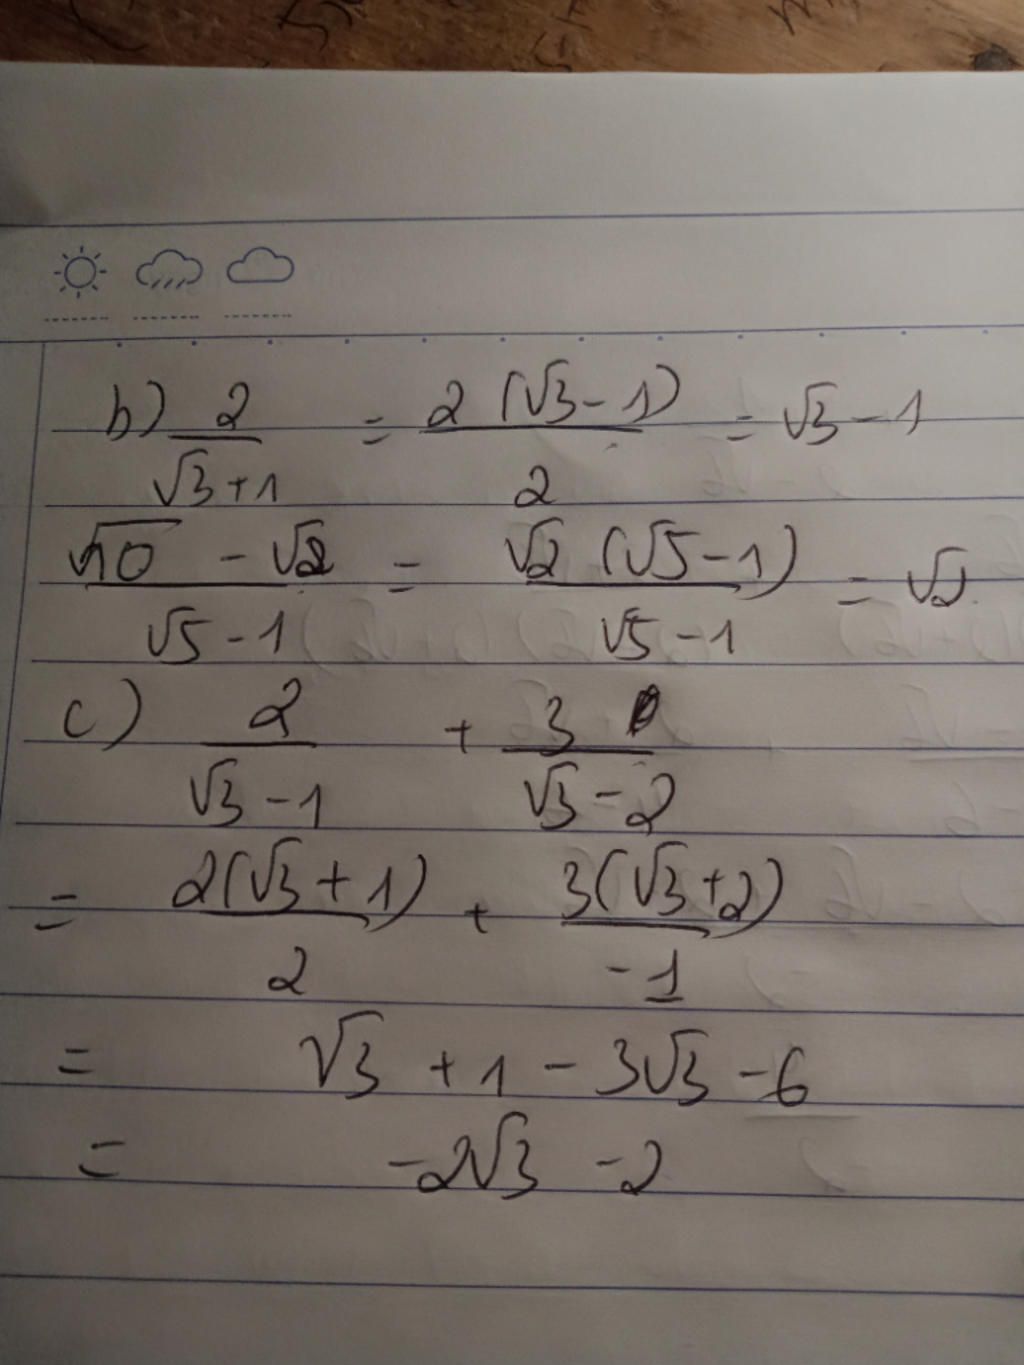 b) 2/(√3+1) = 2(√3-1)/2 = √3-1
(√10 - √2)/(√5-1) = √2(√5-1)/(√5-1) = √2
c) 2/(√3-1) + 3/(√3-2)
= 2(√3+1)/2 + 3(√3+2)/-1
= √3+1-3√3-6
= -2√3-2